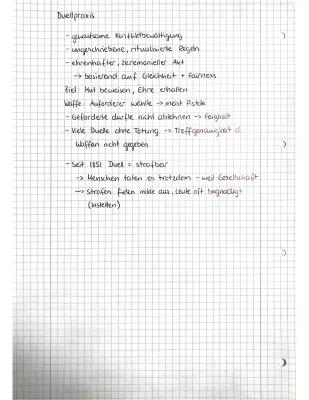 Duellpraxis
- gewaltsame Konfliktbewältigung
- ungeschriebene, ritualisierte Regeln
- ehrenhafter, zeremonieller Akt
→ basierend auf Gleichheit + Fairness
Ziel: Mut beweisen, Ehre erhalten
Waffe: Aufforderer wählte → meist Pistole
- Geforderte durfte nicht ablehnen → Feigheit
- Viele Duelle ohne Tötung → Treffgenauigkeit d.
Waffen nicht gegeben
- Seit 1851 Duell = strafbar
→ Menschen taten es trotzdem - weil Gesellschaft
→ Strafen fielen milde aus, Leute oft begnadigt